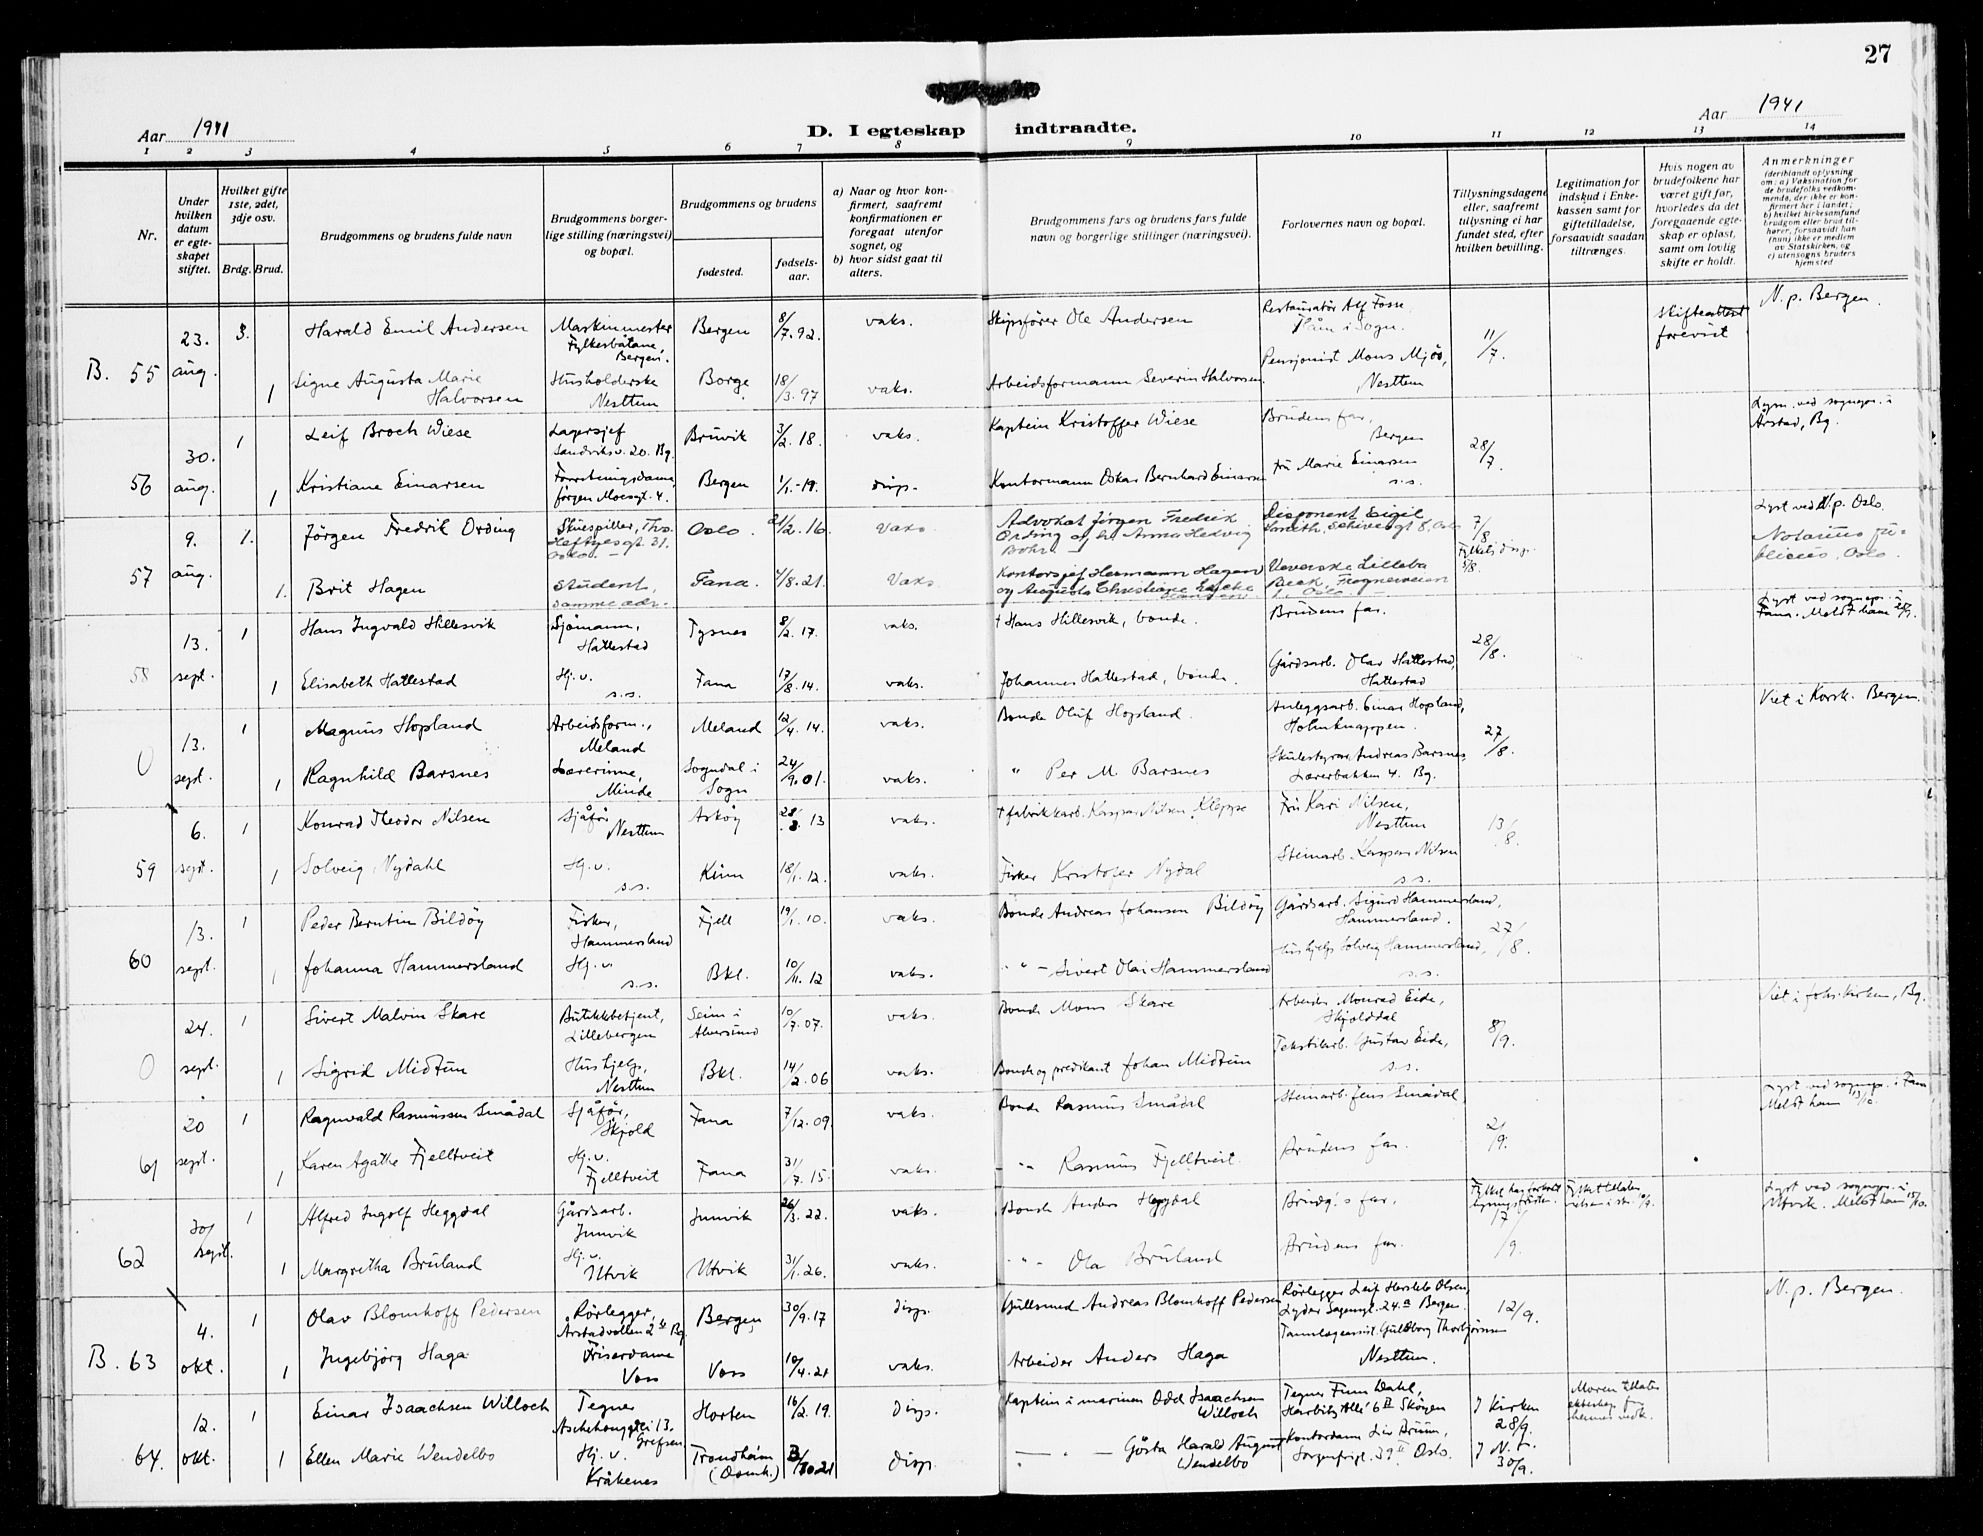 27
Aar 1941
D. I egteskap indtraadte.
Aar 1941
1 2 3 4 5 6 7 8 9 10 11 12 13 14
Nr.
Under hvilken datum er egteskapet stiftet.
Hvilket gifte 1ste, 2det, 3dje osv.
Brdg. Brud.
Brudgommens og brudens fulde navn
Brudgommens borgerlige stilling (næringsvei) og bopæl.
Brudgommens og brudens
fødested. fødselsaar.
a) Naar og hvor konfirmert, saafremt konfirmationen er foregaat utenfor sognet, og
b) hvor sidst gaat til alters.
Brudgommens fars og brudens fars fulde navn og borgerlige stillinger (næringsvei).
Forlovernes navn og bopæl.
Tillysningsdagene eller, saafremt tillysning ei har fundet sted, efter hvilken bevilling.
Legitimation for indskud i Enkekassen samt for giftetilladelse, forsaavidt saadan tiltrænges.
Hvis nogen av brudefolkene har været gift før, hvorledes da det foregaaende egteskap er opløst, samt om lovlig skifte er holdt.
Anmerkninger
(deriblandt oplysning om: a) Vaksination for de brudefolks vedkommende, der ikke er konfirmert her i landet; b) hvilket kirkesamfund brudgom eller brud tilhører, forsaavidt han (hun) ikke er medlem av Statskirken, og c) utensogns bruders hjemsted
B. 55 23. aug. 3. Harald Emil Andersen Maskinmester Fylkesbåtane Bergen. Bergen 8/7.92. vaks. Skipsfører Ole Andersen Restauratør Alf Fosse Håm i Sogn. 11/7. Skifteattest forevist N.p. Bergen.
1 Signe Augusta Marie Halvorsen Husholderske Nesttun Borge 18/3.97 vaks. Arbeidsformann Severin Halvorsen. Pensjonist Mons Mjøs, Nesttun
56 30. aug. 1 Leif Broch Wiese Lagersjef Sandviksv. 20. Bg. Bruvik 3/2.18. vaks. Kaptein Kristoffer Wiese Brudens far, Bergen 28/7. Lysn. ved sognepr. i Årstad, Bg.
1 Kristiane Einarsen Forretningsdame, Jørgen Moesgt. 4. Bergen 1/1.-19. disp. Kontormann Oskar Bernhard Einarsen Fru Marie Einarsen s.s.
57 9. aug. 1. Jörgen Fredrik Ording Skuespiller, Ths. Heftyesgt. 31. Oslo. Oslo. 21/2.16 Vaks Advokat Jørgen Fredrik Ording og h. Anna Hedvig Bohr Disponent Eigil 7/8 Lyst ved N.p. Oslo. Notarius publicus, Oslo.
1. Brit Hagen Student, samme adr. Fana. 4/8.21. Vaks Kontorsjef Hermann Hagen og Augusta Christiane Beck, Frognerveien Oslo.
58 13. sept. 1 Hans Ingvald Hillesvik Sjømann, Hattestad Tysnes 8/2.17. vaks. † Hans Hillesvik, bonde. Brudens far. 28/8. Lyst ved sognepr. i Fana. Meldt ham
1 Elisabeth Hattestad Hj.v. s.s. Fana 17/8.14. vaks. Johannes Hattestad, bonde. Gårdsarb. Olav Hattestad, Hattestad
0 13. sept. 1 Magnus Hopland Arbeidsform., Meland Meland 12/4.14. vaks. Bonde Oluf Hopland. Anleggsarb. Einar Hopland, Holmknappen. 27/8. Viet i Korsk. Bergen.
1 Ragnhild Barsnes Lærerinne, Minde Sogndal i Sogn 24/9.01. vaks. " Per M. Barsnes Skulestyrar Andreas Barsnes Lærerbakken 4. Bg.
59 6. sept. 1 Konrad Theodor Nilsen Sjåför Nesttun Askøy 28/3.13 vaks. † fabrikkarb. Kaspar Nilsen, Kleppe Fru Kari Nilsen, Nesttun 13/8.
1 Solveig Nydahl Hj.v. s.s. Kinn 18/1.12. vaks. Fisker Kristofer Nydal Steinarb. Kaspar Nilsen s.s.
60 13. sept. 1 Peder Berntin Bildöy Fisker, Hammersland Fjell 19/1.10. vaks. Bonde Andreas Johansen Bildöy Gårdsarb. Sigurd Hammersland, Hammersland. 27/8.
1 Johanna Hammersland Hj.v. s.s. Bkl. 10/11.12 vaks. " Sivert Olai Hammersland Hushjelp Solveig Hammersland, s.s.
0 24. sept. 1 Sivert Malvin Skare Butikkbetjent, Lillebergen Seim i Alversund 10/7.07. vaks. Bonde Mons Skare Arbeider Monrad Eide, Skjolddal 8/9. Viet i Joh.kirken, Bg.
1 Sigrid Midtun Hushjelp, Nesttun Bkl. 14/2.06 vaks. Bonde og predikant Johan Midtun Tekstilarb. Gustav Eide, s.s.
61 20 sept. 1 Ragnvald Rasmussen Smådal Sjåför, Skjold Fana 7/12.09. vaks. Bonde Rasmus Smådal Steinarb. Jens Smådal 2/9. Lyst ved sognepr. i Fana Meldt ham 13/10.
1 Karen Agathe Fjelltveit Hj.v. Fjelltveit Fana 31/7.15. vaks. " Rasmus Fjelltveit. Brudens far.
62 20/ sept. 1 Alfred Ingolf Heggdal Gårdsarb. Innvik Innvik 26/3.22. vaks. Bonde Anders Heggdal Brudg.'s far. 17/9. Lyst ved sognepr. i Utvik. Meldt ham 15/10.
1 Margretha Bruland Hj.v. Utvik Utvik 31/1.26. vaks. " Ola Bruland Brudens far.
B. 63 4. okt. 1 Olav Blomhoff Pedersen Rørlegger, Årstadvollen 2 Bg. Bergen 30/9.17 disp. Gullsmed Andreas Blomhoff Pedersen Rørlegger Leif Hersleb Olsen, Lyder Sagengt. 24a Bergen. 12/9. N.p. Bergen.
1 Ingebjörg Haga Friserdame Voss Voss 10/4.21 vaks. Arbeider Anders Haga Tannlegeassist. Guldborg Thorbjörnsen Nesttun.
64. 12. okt. 1 Einar Isaachsen Willoch Tegner Aschehougvei 13. Grefsen Horten 16/2.19. disp. Kaptein i marinen Odd Isaachsen Willoch Tegner Finn Dahl, Harbitz Allé 6 Skøyen I Kirken 28/9. Moren tillater ekteskap for hennes vedk.
1 Ellen Marie Wendelbo Hj.v. Kråkenes Trondheim (Domk.) 3/10.21 disp. " Gösta Harald August Wendelbo Kontordame Liv Bruun, Sorgenfrigt. 39 Oslo. I N.T. 30/9.